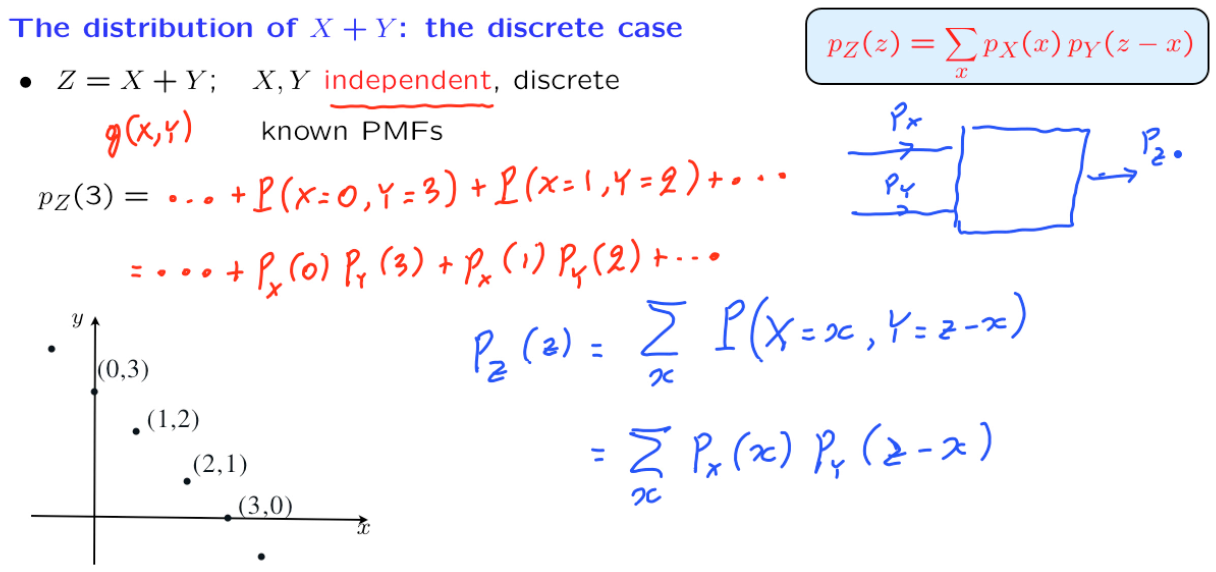 The distribution of X + Y: the discrete case
p_Z(z) = ∑_x p_X(x) p_Y(z − x)
• Z = X + Y; X, Y independent, discrete
g(X,Y) known PMFs
P_X
P_Y
P_Z.
p_Z(3) = ... + P(X=0, Y=3) + P(X=1, Y=2) + ...
= ... + P_X(0) P_Y(3) + P_X(1) P_Y(2) + ...
P_Z(z) = ∑_x P(X=x, Y=z−x)
= ∑_x P_X(x) P_Y(z−x)
y
(0,3)
(1,2)
(2,1)
(3,0)
x